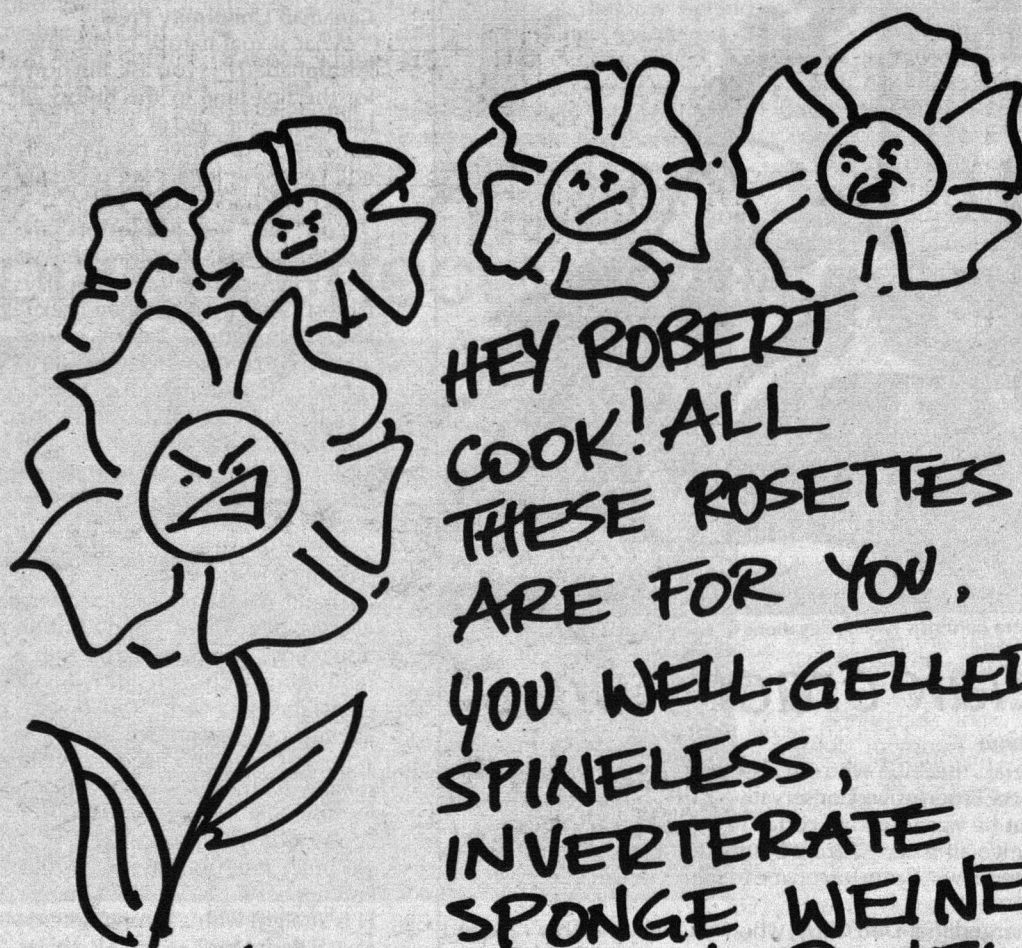 HEY ROBERT
COOK! ALL
THESE ROSETTES
ARE FOR YOU.
YOU WELL-GELLED
SPINELESS,
INVERTERATE
SPONGE WEINE